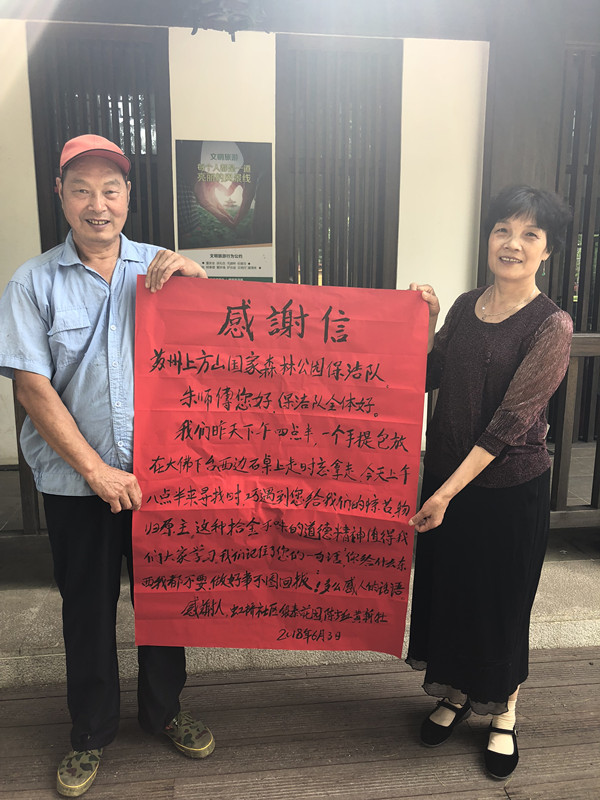 文明旅游
每个人都是一道
亮丽的风景线
文明旅游行为公约
感謝信
苏州上方山国家森林公园保洁队
朱师傅您好，保洁队全体好。
我们昨天下午四点半，一个手提包放
在大佛下台西边石桌上走时忘拿走，今天上午
八点半来寻找时，巧遇到您给我们的
归原主，这种拾金不昧的道德精神值得我
们大家学习，我们记住了您的一句话“你给什么东
西我都不要，做好事不图回报”，多么感人的话语
感谢人，虹桥社区
2018年6月3日